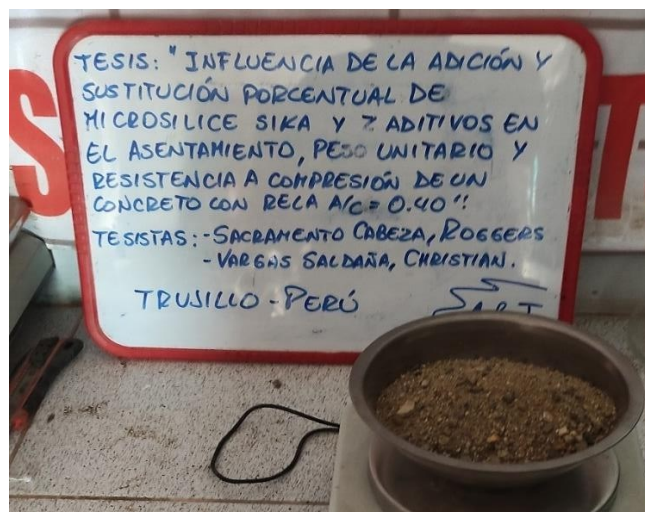 TESIS: "INFLUENCIA DE LA ADICIÓN Y
SUSTITUCIÓN PORCENTUAL DE
MICROSILICE SIKA Y 2 ADITIVOS EN
EL ASENTAMIENTO, PESO UNITARIO Y
RESISTENCIA A COMPRESIÓN DE UN
CONCRETO CON RELA A/C = 0.40".
TESISTAS: - SACRAMENTO CABEZA, ROGGERS
- VARGAS SALDAÑA, CHRISTIAN.
TRUJILLO - PERÚ